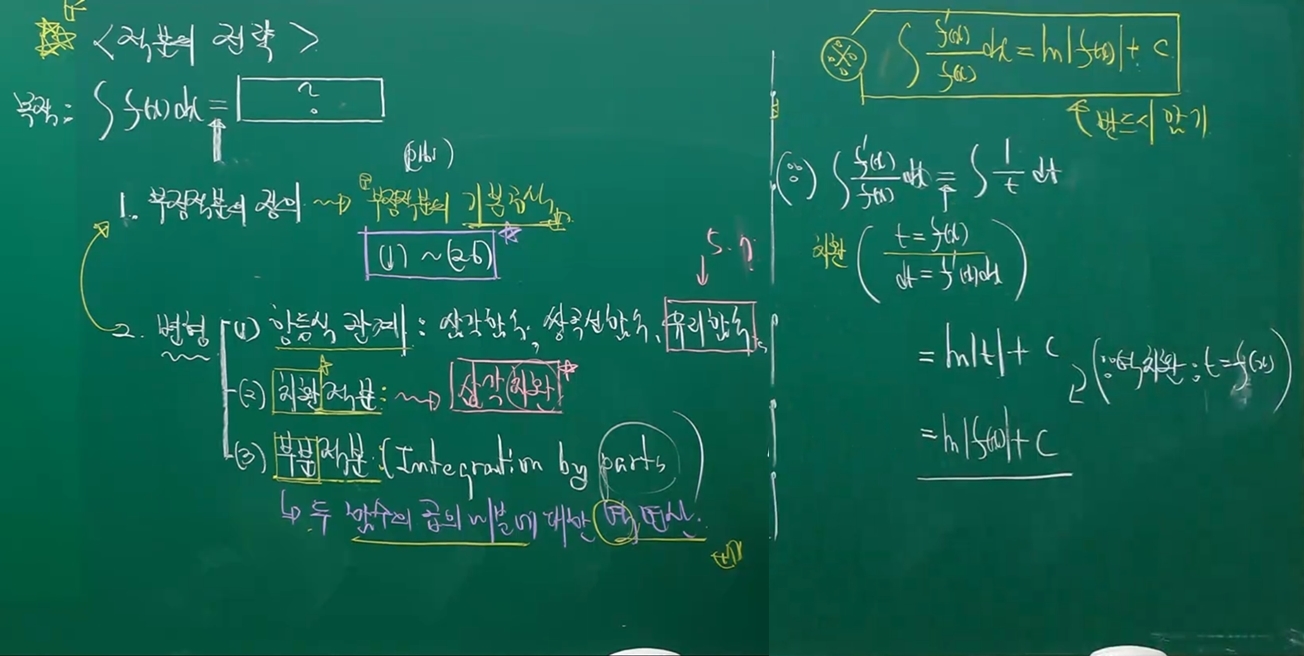 <적분의 전략>
목적: ∫ f(x)dx = ?
1. 부정적분의 정의 ⇝ 부정적분의 기본공식
(1) ~ (26)
5.7
2. 변형 (1) 항등식 관계 : 삼각함수, 쌍곡선함수, 유리함수
(2) 치환적분 : ⇝ 삼각치환
(3) 부분적분 (Integration by parts)
↳ 두 함수의 곱의 미분에 대한 역연산.
∫ f'(x)/f(x) dx = ln|f(x)| + C
반드시 암기
(∵) ∫ f'(x)/f(x) dx = ∫ 1/t dt
치환 ( t = f(x)
dt = f'(x)dx )
= ln|t| + C
(∵역치환 : t = f(x))
= ln|f(x)| + C